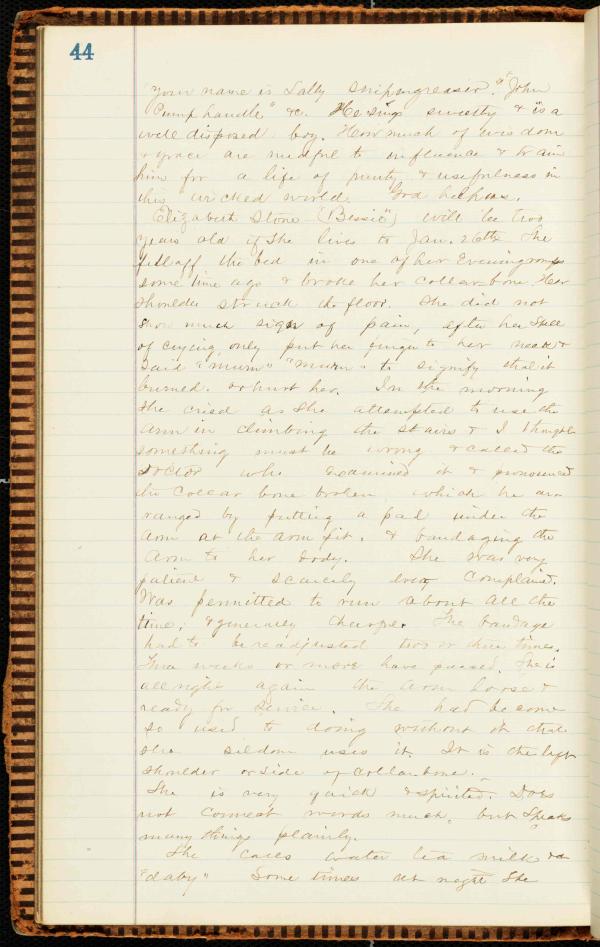 44
your name is Sally " "John
Pump handle" &c. He sings sweetly & is a
well disposed boy. How much of wisdom
& grace are needful to influence & train
him for a life of purity & usefulness in
this wicked world. God help us.
Elizabeth Stone ("Bessie") will be two
years old if she lives to Jan. 26th She
fell off the bed in one of her Evening romps
some time ago & broke her collar-bone. Her
shoulder struck the floor. She did not
show much sign of pain, after her spell
of crying, only put her finger to her neck &
said "mum" "mum" to signify that it
burned. or hurt her. In the morning
she cried as she attempted to use the
arm in climbing the stairs & I thought
something must be wrong & called the
Doctor who examined it & pronounced
the collar bone broken which he ar-
ranged by putting a pad under the
arm at the arm pit. & bandaging the
arm to her body. She was very
patient & scarcely ever complained.
Was permitted to run about all the
time, & generally cheerful. The bandage
had to be readjusted two or three times.
Three weeks or more have passed. She is
all right again the arm loose &
ready for service. She had become
so used to doing without it that
she seldom uses it. It is the left
shoulder or side of collar-bone.
She is very quick & spirited. Does
not connect words much, but speaks
many things plainly.
She calls water tea milk &a
"daby" Some times at night she